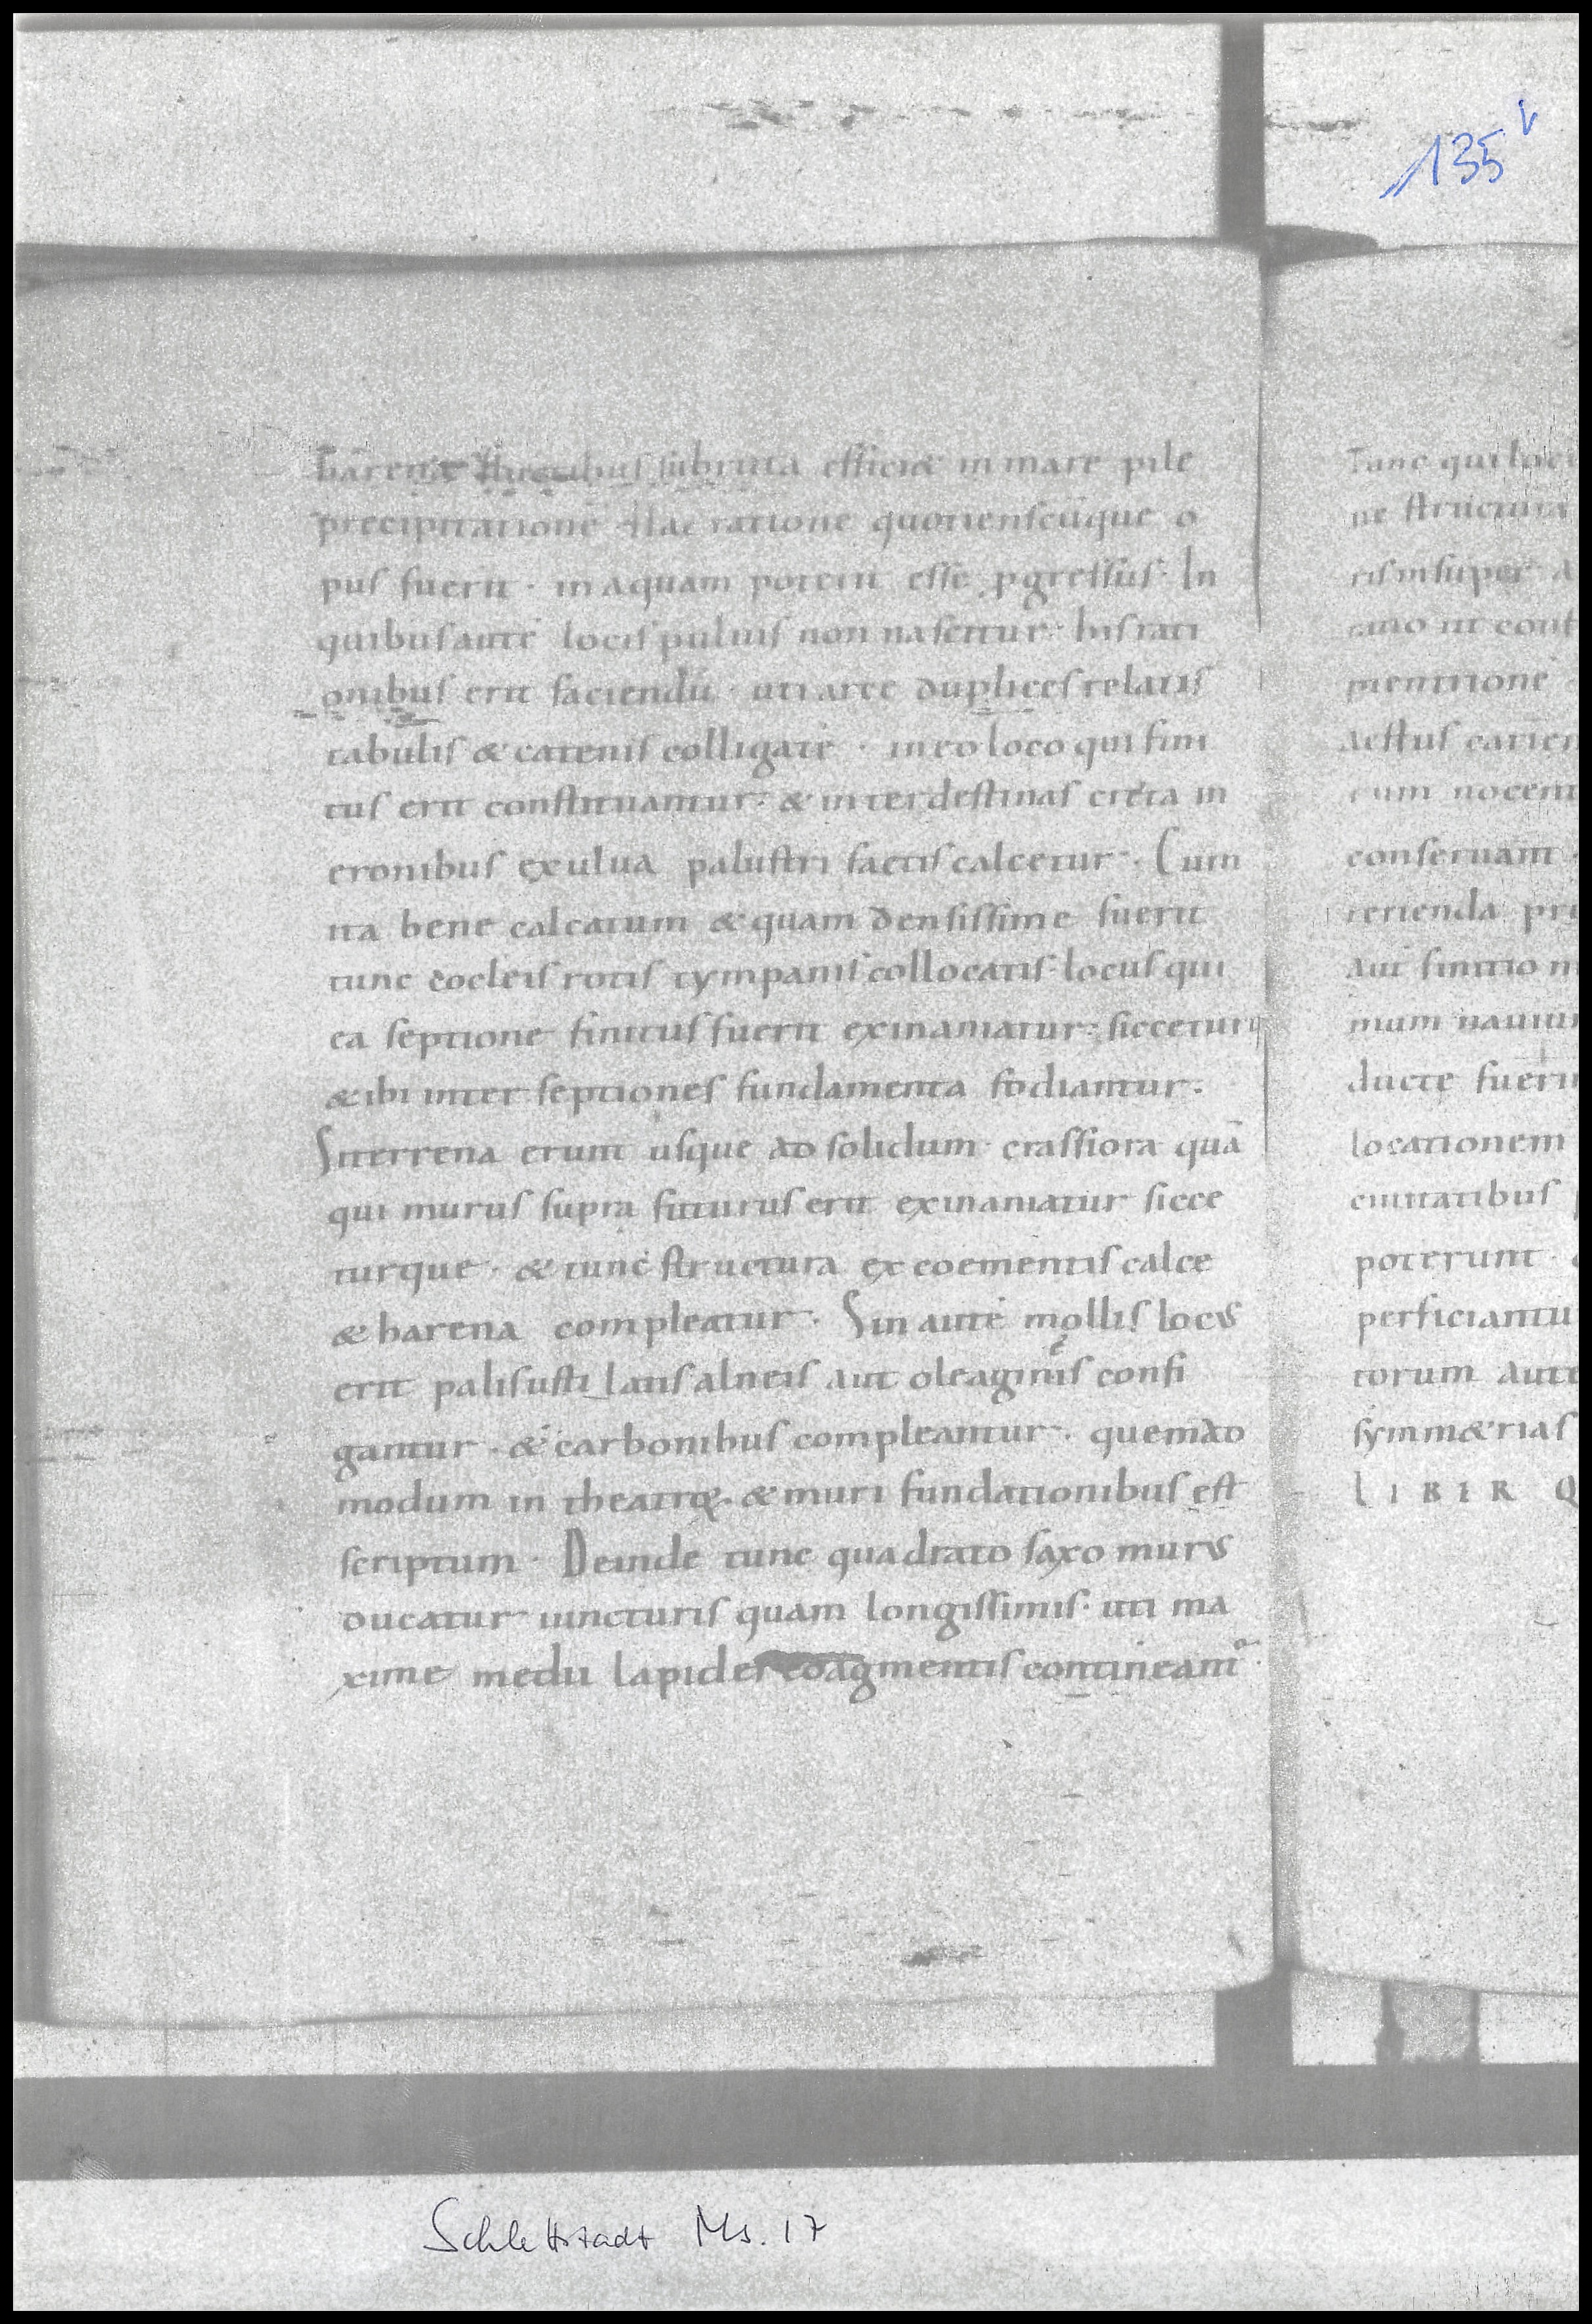 135v
harena fluctibus subruta efficiæ in mare pile
precipitationē Hac ratione quotienscūque o
pus fuerit · in aquam poterit esse ꝓgressus · In
quibus autē locis puluis non nascitur · his rati
onibus erit faciendū · uti arce duplices relatis
tabulis & catenis colligate · in eo loco qui fini
tus erit constituantur · & inter destinas creta in
eronibus ex ulua palustri factis calcetur · Cum
ita bene calcatum & quam densissime fuerit
tunc cocleis rotis tympanis collocatis · locus qui
ea septione finitus fuerit exinaniatur · siccetur
& ibi inter septiones fundamenta fodiantur ·
Si terrena erunt usque ad solidum · crassiora quā
qui murus supra futurus erit exinaniatur sicce
turque · & tunc structura ex coementis calce
& harena compleatur · Sin autē mollis locus
erit palis ustilatis alneis aut oleagineis confi
gantur · & carbonibus compleantur · quemad
modum in theatrorum · & muri fundationibus est
scriptum · Deinde tunc quadrato saxo murus
ducatur iuncturis quam longissimis · uti ma
xime medii lapides coagmentis contineant᷑ ·
Tunc qui loc
ne structura
ris insuper · A
tatio ut cont
mentitionē
aestus carien
rum nocent
conseruant ·
terienda pri
aut finitio n
mum nauiu
ducte fuerin
locationem
ciuitatibus
poterunt ·
perficiantu
torum aute
symmætrias
LIBER Q
Schlettstadt Ms. 17